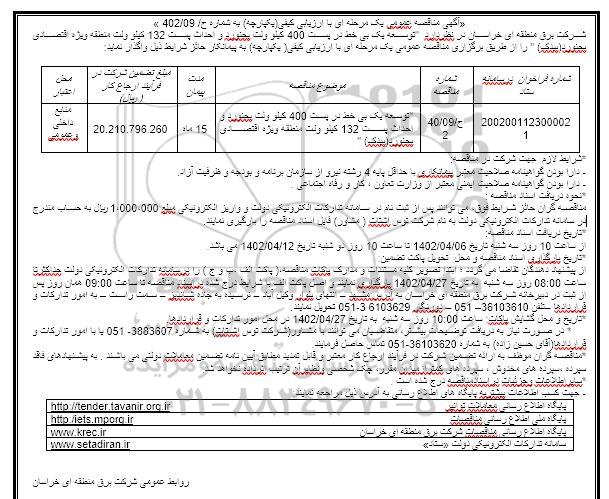 «آگهي مناقصه عمومي یک مرحله ای با ارزيابی کيفی(یکپارچه) به شماره ح/ 402/09 »
شــرکت برق منطقه ای خراسـان در نظر دارد "توسعه یک بی خط در پست 400 کیلو ولت بجنورد و احداث پست 132 کیلو ولت منطقه ویژه اقتصــادی
بجنورد(بیدک) " را از طریق برگزاری مناقصه عمومی یک مرحله ای با ارزیابی کیفی( یکپارچه) به پیمانکار حائز شرایط ذیل واگذار نماید:
شماره فراخوان در سامانه ستاد
شماره مناقصه
موضوع مناقصه
مدت پیمان
مبلغ تضمین شرکت در فرآیند ارجاع کار (ریال)
محل اعتبار
200200112300002
1
ح/40/09
2
"توسعه یک بی خط در پست 400 کیلو ولت بجنورد و
احداث پست 132 کیلو ولت منطقه ویژه اقتصـــادی
بجنورد(بیدک) "
15 ماه
20.210.796.260
منابع
داخلی
وعمومی
*شرایط لازم جهت شرکت در مناقصه:
- دارا بودن گواهینامه صلاحیت معتبر پیمانکاری با حداقل پایه 4 رشته نیرو از سازمان برنامه و بودجه و ظرفیت آزاد.
- دارا بودن گواهینامه صلاحیت ایمنی معتبر از وزارت تعاون ، کار و رفاه اجتماعی .
*نحوه دریافت اسناد مناقصه:
مناقصه گران حائز شرایط فوق، می توانند پس از ثبت نام در سامانه تدارکات الکترونیکی دولت و واریز الکترونیکی مبلغ 1،000،000 ریال به حساب مندرج
در سامانه تدارکات الکترونیکی دولت به نام شرکت توس اشتات ( مشاور) فایل اسناد مناقصه را بارگیری نمایند.
*تاریخ دریافت اسناد مناقصه:
از ساعت 10 روز سه شنبه تاریخ 1402/04/06 تا ساعت 10 روز دو شنبه تاریخ 1402/04/12 می باشد.
*تاریخ بارگذاری اسناد مناقصه و محل تحویل پاکت تضمین:
از پیشنهاد دهندگان تقاضا می گردد ، ابتدا تصویر کلیه مستندات و مدارک پاکات مناقصه( پاکت الف ، ب و ج ) را در سامانه تدارکات الکترونیکی دولت حداکثر تا
ساعت 08:00 روز سه شنبه به تاریخ 1402/04/27 بارگذاری نمایند و اصل پاکت الف با شرایط درج شده در اسناد مناقصه تا ساعت 09:00 همان روز پس
از ثبت در دبیرخانه شرکت برق منطقه ای خراسان به انتهای بلوار وکیل آباد – نرسیده به جاده – سمت راست – به امور تدارکات و
قراردادها تلفن 36103610- 051 – دورنگار 36103629-051 تحویل نمایند.
*تاریخ و محل گشایش پاکات: ساعت 10:00 روز سه شنبه به تاریخ 1402/04/27 در محل امور تدارکات و قراردادها.
* در صورت نیاز به دریافت توضیحات بیشتر، متقاضیان می توانند با مشاور(شرکت توس اشتات) به شماره 3883607- 051 یا با امور تدارکات و
قراردادها(آقای حسن زاده) به شماره 36103620-051 تماس حاصل فرمایند.
*مناقصه گران موظف به ارائه تضمین شرکت در فرآیند ارجاع کار معتبر و قابل تمدید مطابق آیین نامه تضمین معاملات دولتی می باشند . به پیشنهادهای فاقد
سپرده ،سپرده های مخدوش ، سپرده های کمتر از میزان مقرر، چک شخصی و نظایر آن ترتیب اثر داده نخواهد شد.
*سایر اطلاعات و جزئیات در اسناد مناقصه درج شده است .
- جهت کسب اطلاعات بیشتر به پایگاه های اطلاع رسانی به آدرس ذیل مراجعه نمایند.
پایگاه اطلاع رسانی معاملات توانیر http://tender.tavanir.org.ir
پایگاه ملی اطلاع رسانی مناقصات http://iets.mporg.ir
پایگاه اطلاع رسانی مناقصات شرکت برق منطقه ای خراسان www.krec.ir
سامانه تدارکات الکترونیکی دولت «ستاد» www.setadiran.ir
روابط عمومی شرکت برق منطقه ای خراسان